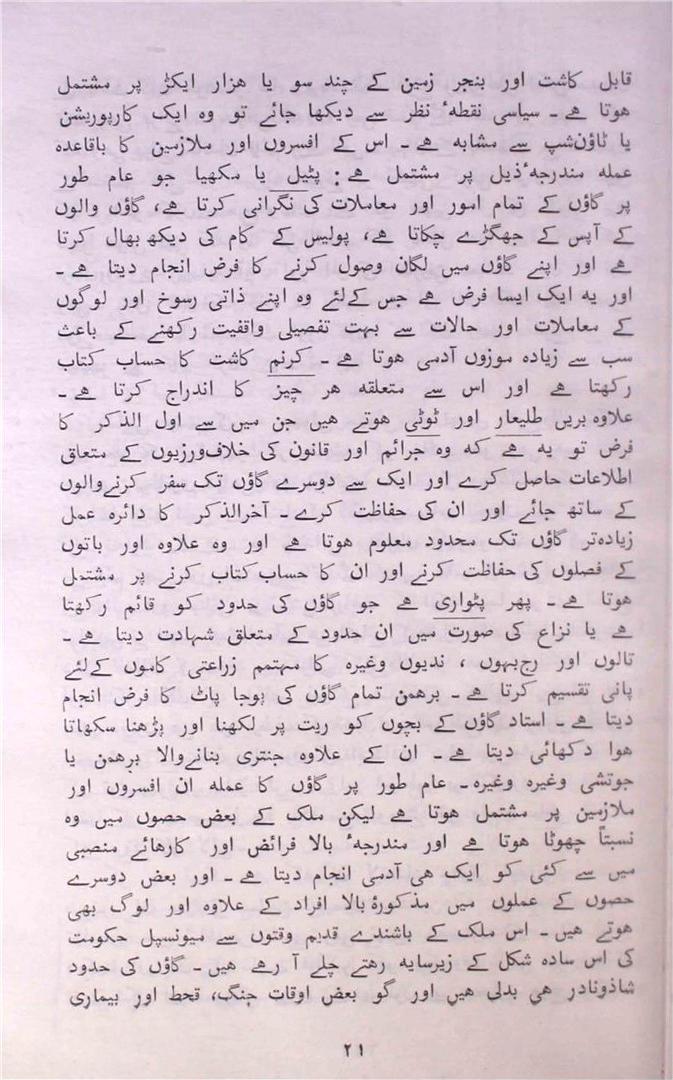 قابل کاشت اور بنجر زمین کے چند سو یا ھزار ایکڑ پر مشتمل
ہوتا ھے ۔ سیاسی نقطہٴ نظر سے دیکھا جائے تو وہ ایک کارپوریشن
یا ٹاؤن‌شپ سے مشابہ ھے ۔ اس کے افسروں اور ملازمین کا باقاعدہ
عملہ مندرجہٴ ذیل پر مشتمل ھے : پٹیل یا مکھیا جو عام طور
پر گاؤں کے تمام امور اور معاملات کی نگرانی کرتا ھے، گاؤں والوں
کے آپس کے جھگڑے چکاتا ھے، پولیس کے کام کی دیکھ بھال کرتا
ھے اور اپنے گاؤں میں لگان وصول کرنے کا فرض انجام دیتا ھے ۔
اور یہ ایک ایسا فرض ھے جس کےلئے وہ اپنے ذاتی رسوخ اور لوگوں
کے معاملات اور حالات سے بہت تفصیلی واقفیت رکھنے کے باعث
سب سے زیادہ موزوں آدمی ہوتا ھے ۔ کرنم کاشت کا حساب کتاب
رکھتا ھے اور اس سے متعلقہ ھر چیز کا اندراج کرتا ھے ۔
علاوہ بریں طلیعار اور ٹوٹی ہوتے ھیں جن میں سے اول الذکر کا
فرض تو یہ ھے کہ وہ جرائم اور قانون کی خلاف‌ورزیوں کے متعلق
اطلاعات حاصل کرے اور ایک سے دوسرے گاؤں تک سفر کرنے‌والوں
کے ساتھ جائے اور ان کی حفاظت کرے ۔ آخرالذکر کا دائرہ عمل
زیادہ‌تر گاؤں تک محدود معلوم ہوتا ھے اور وہ علاوہ اور باتوں
کے فصلوں کی حفاظت کرنے اور ان کا حساب کتاب کرنے پر مشتمل
ہوتا ھے ۔ پھر پٹواری ھے جو گاؤں کی حدود کو قائم رکھتا
ھے یا نزاع کی صورت میں ان حدود کے متعلق شہادت دیتا ھے ۔
تالوں اور رج‌بہوں ، ندیوں وغیرہ کا مہتمم زراعتی کاموں کےلئے
پانی تقسیم کرتا ھے ۔ برھمن تمام گاؤں کی پوجا پاٹ کا فرض انجام
دیتا ھے ۔ استاد گاؤں کے بچوں کو ریت پر لکھنا اور پڑھنا سکھاتا
ھوا دکھائی دیتا ھے ۔ ان کے علاوہ جنتری بنانے‌والا برھمن یا
جوتشی وغیرہ وغیرہ ۔ عام طور پر گاؤں کا عملہ ان افسروں اور
ملازمین پر مشتمل ہوتا ھے لیکن ملک کے بعض حصوں میں وہ
نسبتاً چھوٹا ہوتا ھے اور مندرجہٴ بالا فرائض اور کارھائے منصبی
میں سے کئی کو ایک ھی آدمی انجام دیتا ھے ۔ اور بعض دوسرے
حصوں کے عملوں میں مذکورۂ بالا افراد کے علاوہ اور لوگ بھی
ہوتے ھیں ۔ اس ملک کے باشندے قدیم وقتوں سے میونسپل حکومت
کی اس سادہ شکل کے زیرسایہ رھتے چلے آ رھے ھیں ۔ گاؤں کی حدود
شاذونادر ھی بدلی ھیں اور گو بعض اوقات جنگ، قحط اور بیماری
۲۱